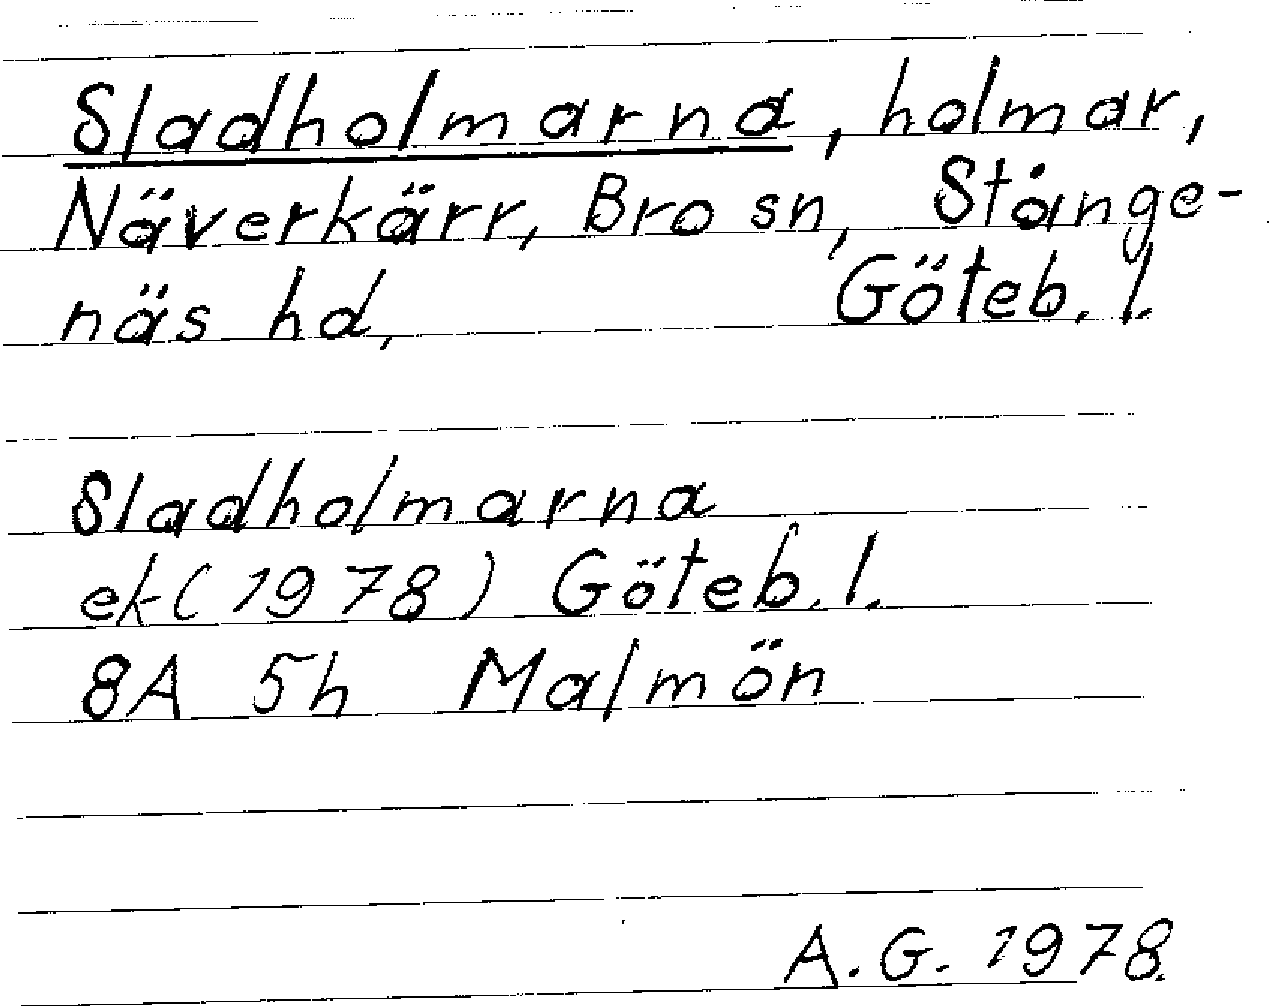 Sladholmarna, holmar,
Näverkärr, Bro sn, Stånge-
näs hd, Göteb. l.
Sladholmarna
ek (1978) Göteb. l.
8A 5h Malmön
A.G. 1978.